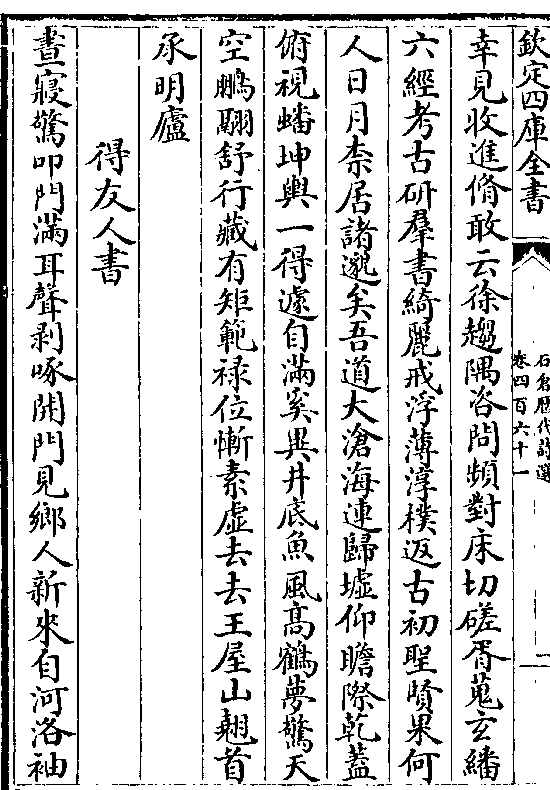 欽定四庫全書
石倉歷代詩選
卷四百六十一
幸見收進脩敢云徐趨隅咨問頻對床切磋胥蒐玄繙
六經考古研羣書綺麗戒浮薄淳樸返古初聖賢果何
人日月柰居諸邈矣吾道大滄海連歸墟仰瞻際乾蓋
俯視蟠坤輿一得遽自滿奚異井底魚風高鶴夢驚天
空鵬翮舒行藏有矩範祿位慚素虛去去王屋山翹首
承明廬
得友人書
晝寢驚叩門滿耳聲剥啄開門見鄉人新來自河洛袖